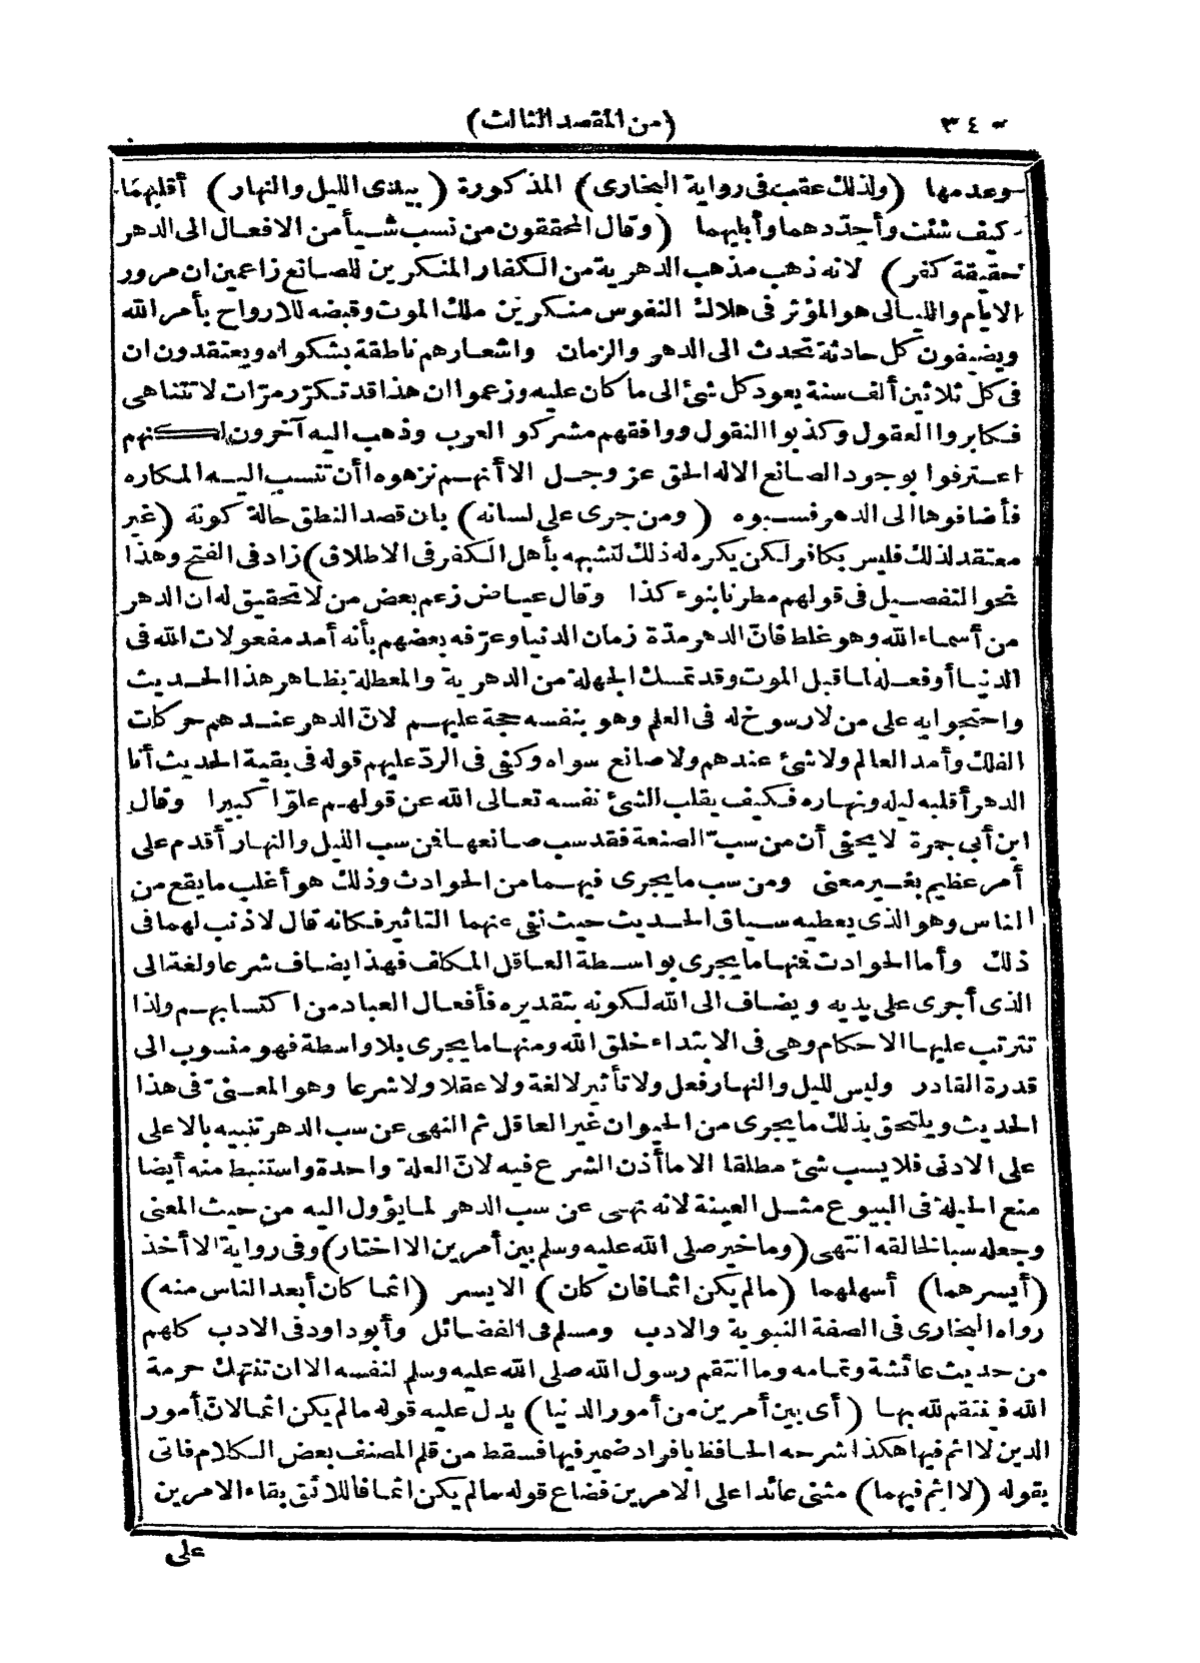 ٣٤٠ (من المقصد الثالث)
وعدمها (ولذلك عقب فى رواية البخارى) المذكورة (بيدى الليل والنهار) أقلبهما
كيف شئت وأجدّدهما وأبليهما (وقال المحققون من نسب شيأ من الافعال الى الدهر
حقيقة كفر) لانه ذهب مذهب الدهرية من الكفار المنكرين للصانع زاعمين ان مرور
الايام والليالى هو المؤثر فى هلاك النفوس منكرين ملك الموت وقبضه للارواح بأمر الله
ويضيفون كل حادثة تحدث الى الدهر والزمان واشعارهم ناطقة بشكواه ويعتقدون ان
فى كل ثلاثين ألف سنة يعود كل شئ الى ما كان عليه وزعموا ان هذا قد تكرّر مرّات لا تتناهى
فكابروا العقول وكذبوا النقول ووافقهم مشركو العرب وذهب اليه آخرون لكنهم
اعترفوا بوجود الصانع الاله الحق عز وجل الا أنهم نزهوه أن تنسب اليه المكاره
فأضافوها الى الدهر فسبوه (ومن جرى على لسانه) بان قصد النطق حالة كونه (غير
معتقد لذلك فليس بكافر لكن يكره له ذلك لتشبهه بأهل الكفر فى الاطلاق) زاد فى الفتح وهذا
نحو التفصيل فى قولهم مطرنا بنوء كذا وقال عياض زعم بعض من لا تحقيق له ان الدهر
من أسماء الله وهو غلط فانّ الدهر مدّة زمان الدنيا وعرّفه بعضهم بأنه أمد مفعولات الله فى
الدنيا أو فعله لما قبل الموت وقد تمسك الجهلة من الدهرية والمعطلة بظاهر هذا الحديث
واحتجوا به على من لا رسوخ له فى العلم وهو بنفسه حجة عليهم لانّ الدهر عندهم حركات
الفلك وأمد العالم ولا شئ عندهم ولا صانع سواه وكفى فى الردّ عليهم قوله فى بقية الحديث أنا
الدهر أقلب ليله ونهاره فكيف يقلب الشئ نفسه تعالى الله عن قولهم علوّا كبيرا وقال
ابن أبى جمرة لا يخفى أن من سبّ الصنعة فقد سب صانعها فمن سب الليل والنهار أقدم على
أمر عظيم بغير معنى ومن سب ما يجرى فيهما من الحوادث وذلك هو أغلب ما يقع من
الناس وهو الذى يعطيه سياق الحديث حيث نفى عنهما التاثير فكانه قال لا ذنب لهما فى
ذلك وأما الحوادث فمنها ما يجرى بواسطة العاقل المكلف فهذا يضاف شرعا ولغة الى
الذى أجرى على يديه ويضاف الى الله لكونه بتقديره فأفعال العباد من اكتسابهم ولذا
تترتب عليها الاحكام وهى فى الابتداء خلق الله ومنها ما يجرى بلا واسطة فهو منسوب الى
قدرة القادر وليس لليل والنهار فعل ولا تأثير لا لغة ولا عقلا ولا شرعا وهو المعنىّ فى هذا
الحديث ويلتحق بذلك ما يجرى من الحيوان غير العاقل ثم النهى عن سب الدهر تنبيه بالاعلى
على الادنى فلا يسب شئ مطلقا الا ما أذن الشرع فيه لانّ العلة واحدة واستنبط منه أيضا
منع الحيلة فى البيوع مثل العينة لانه نهى عن سب الدهر لما يؤول اليه من حيث المعنى
وجعله سبا لخالقه انتهى (وما خير صلى الله عليه وسلم بين أمرين الا اختار) وفى رواية الا أخذ
(أيسرهما) أسهلهما (ما لم يكن اثما فان كان) الايسر (اثما كان أبعد الناس منه)
رواه البخارى فى الصفة النبوية والادب ومسلم فى الفضائل وأبو داود فى الادب كلهم
من حديث عائشة وتمامه وما انتقم رسول الله صلى الله عليه وسلم لنفسه الا ان تنتهك حرمة
الله فينتقم لله بها (أى بين أمرين من أمور الدنيا) يدل عليه قوله ما لم يكن اثما لانّ أمور
الدين لا اثم فيها هكذا شرحه الحافظ بافراد ضمير فيها فسقط من قلم المصنف بعض الكلام فاتى
بقوله (لا اثم فيهما) مثنى عائدا على الامرين فضاع قوله ما لم يكن اثما فاللائق بقاء الامرين
على